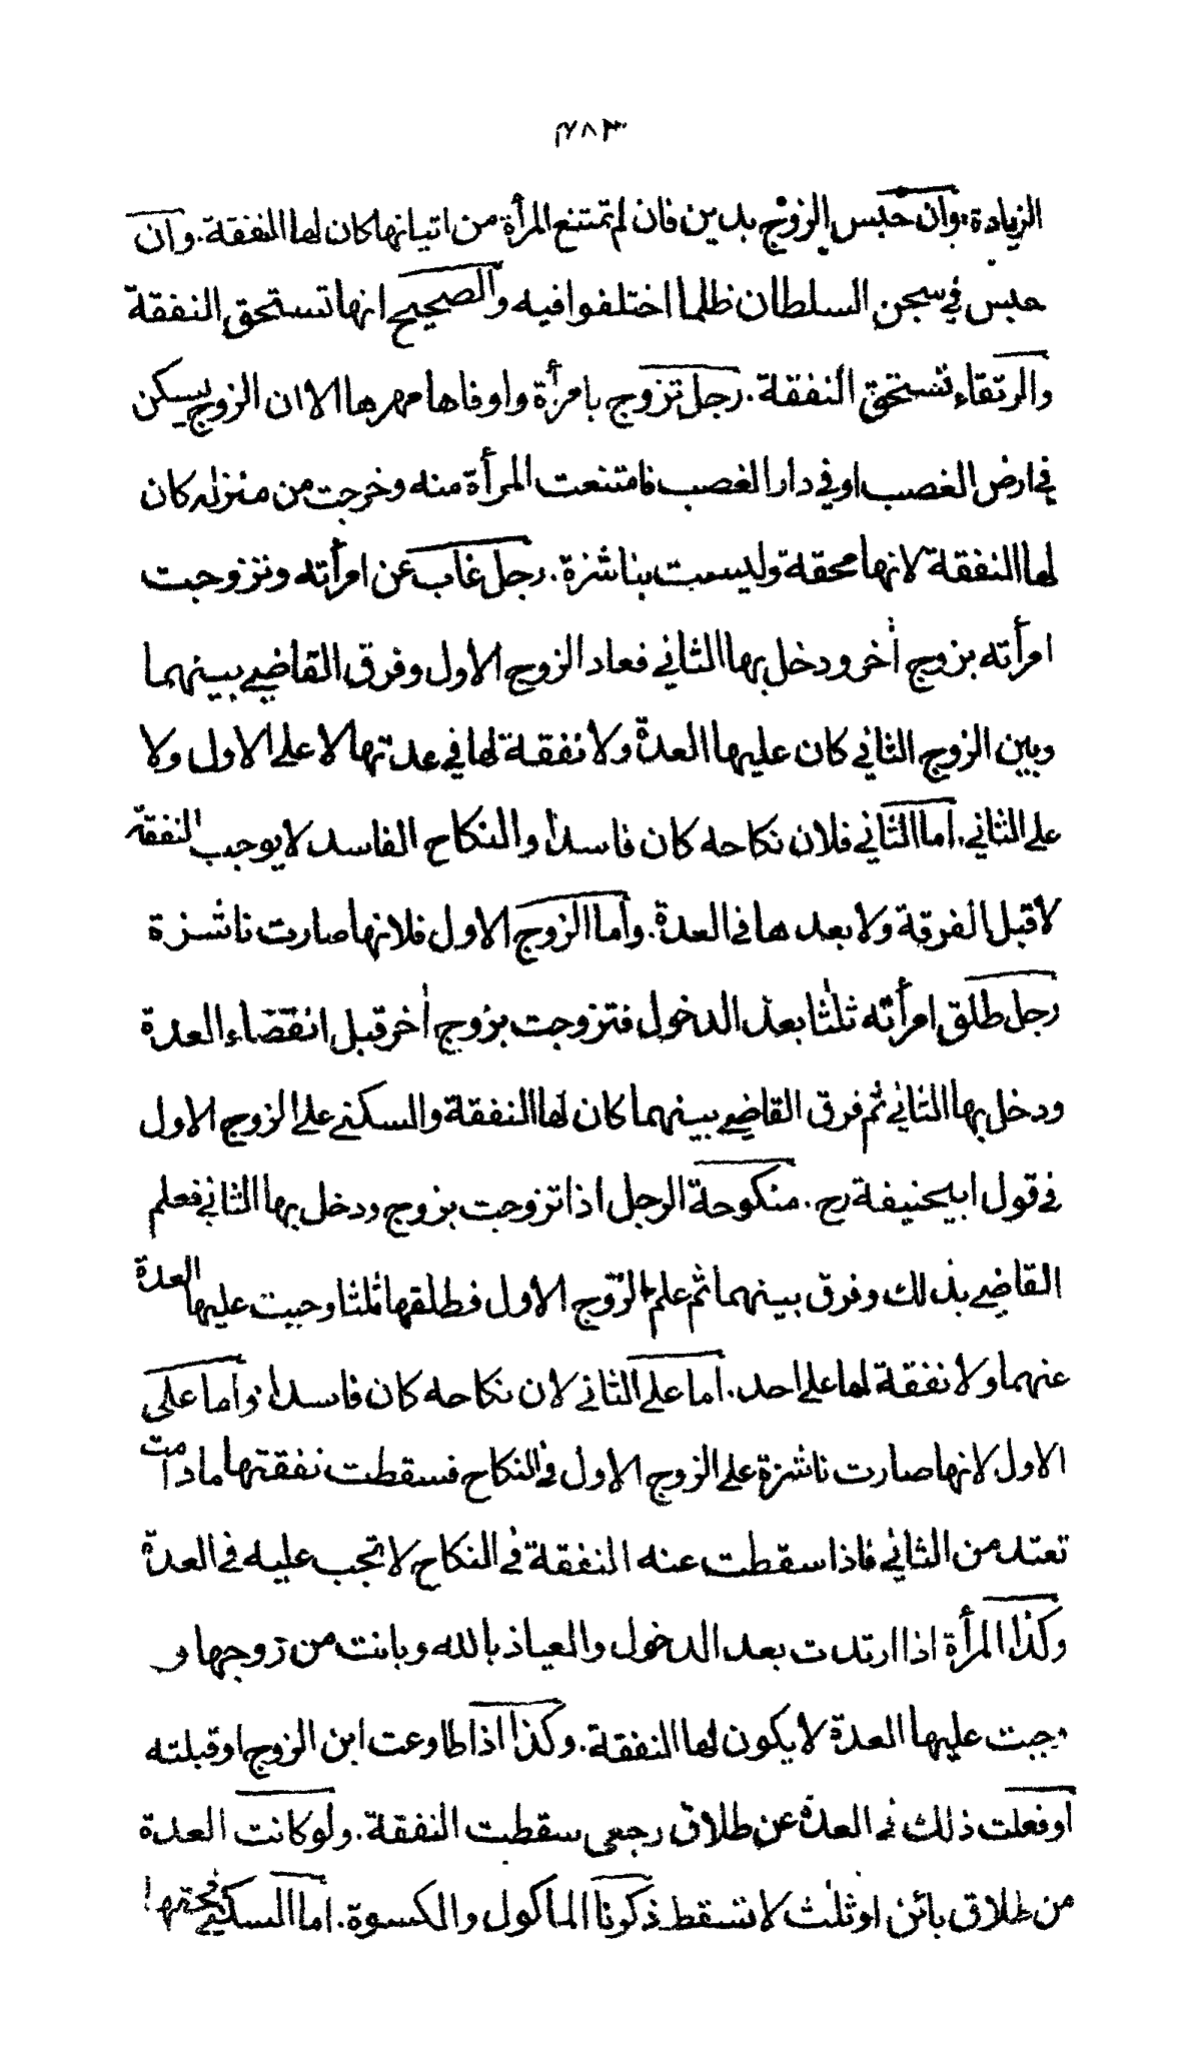 ٤٨٣
الزيادة، وان حبس الزوج بدين فان لم تمتنع المرأة من اتيانها كان لها النفقة. وان
حبس في سجن السلطان ظلما اختلفوا فيه والصحيح انها تستحق النفقة
والرتقاء تستحق النفقة. رجل تزوج بامرأة واوفاها مهرها الا ان الزوج يسكن
في ارض الغصب او في دار الغصب فامتنعت المرأة منه وخرجت من منزله كان
لها النفقة لانها محقة وليست بناشزة. رجل غاب عن امرأته وتزوجت
امرأته بزوج أخر ودخل بها الثاني فعاد الزوج الاول وفرق القاضي بينهما
وبين الزوج الثاني كان عليها العدة ولا نفقة لها في عدتها لا على الاول ولا
على الثاني. اما الثاني فلان نكاحه كان فاسدا والنكاح الفاسد لا يوجب النفقة
لا قبل الفرقة ولا بعدها في العدة. واما الزوج الاول فلانها صارت ناشزة
رجل طلق امرأته ثلثا بعد الدخول فتزوجت بزوج أخر قبل انقضاء العدة
ودخل بها الثاني ثم فرق القاضي بينهما كان لها النفقة والسكنى على الزوج الاول
في قول ابيحنيفة رح. منكوحة الرجل اذا تزوجت بزوج ودخل بها الثاني فعلم
القاضي بذلك وفرق بينهما ثم علم الزوج الاول فطلقها ثلثا وجبت عليها العدة
عنهما ولا نفقة لها على احد. اما على الثاني لان نكاحه كان فاسدا، واما على
الاول لانها صارت ناشزة على الزوج الاول في النكاح فسقطت نفقتها ما دامت
تعتد من الثاني فاذا سقطت عنه النفقة في النكاح لا تجب عليه في العدة
وكذا المرأة اذا ارتدت بعد الدخول والعياذ بالله وبانت من زوجها و
وجبت عليها العدة لا يكون لها النفقة. وكذا اذا طاوعت ابن الزوج او قبلته
او فعلت ذلك في العدة عن طلاق رجعي سقطت النفقة. ولو كانت العدة
من طلاق بائن او ثلث لا تسقط ذكرنا الماكول والكسوة. اما السكنى فحقها